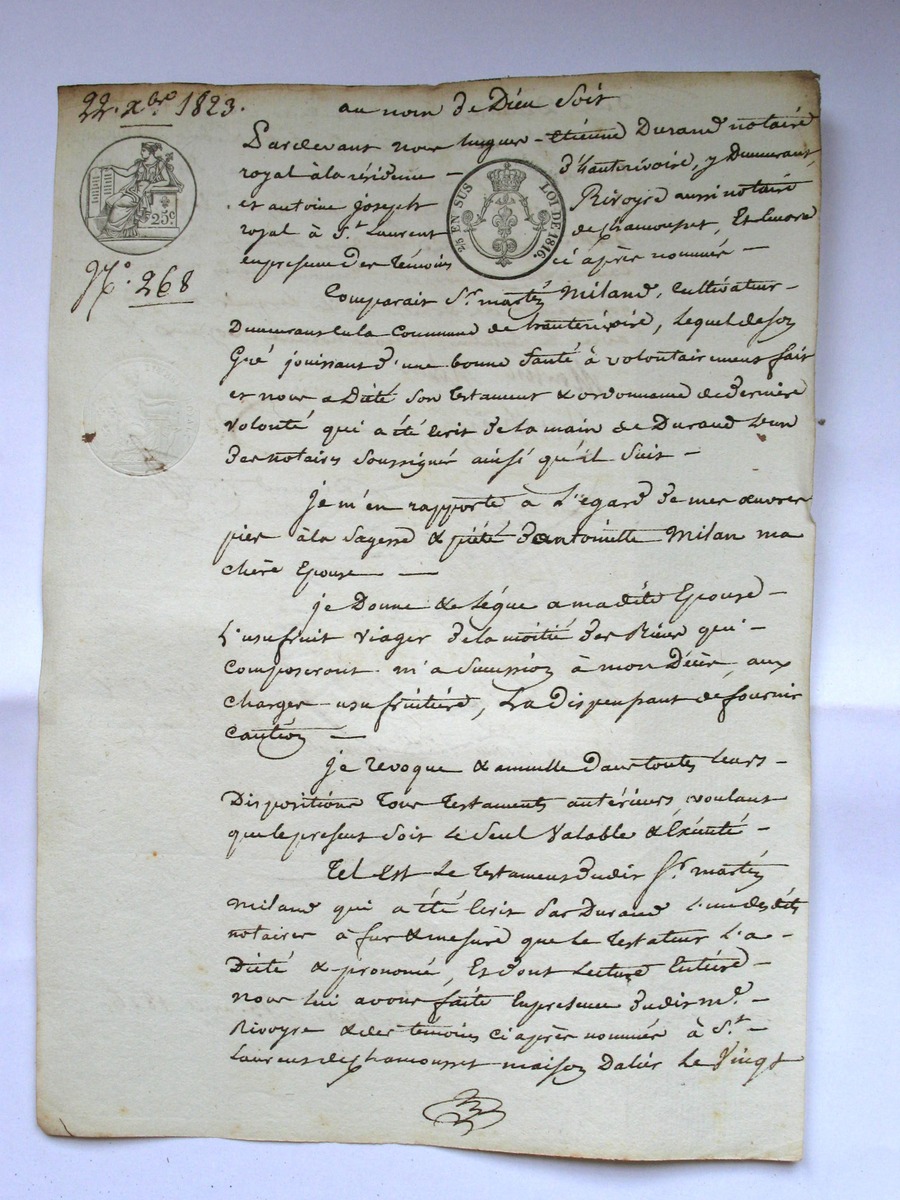 22. xbre 1823.
au nom de Dieu soit
Pardevant nous hugues-étienne Durand notaire
royal à la résidence d'hauterivoire, y Demeurant,
et antoine joseph Rivoyre aussi notaire
royal à St. Laurent de chamousset, Et Encore
en presence Des témoins ci après nommés —
25c.
25 EN SUS
LOI DE 1816.
N°. 268
Comparait Sr. martin Miland, Cultivateur —
Demeurant en la Commune de hauterivoire, Lequel de son
Gré jouissant d'une bonne santé à volontairement fait
et nous a Dicté son testament & ordonnance de dernière
volonté qui a été écrit de la main de Durand L'un
des notaires soussignés ainsi qu'il suit —
je m'en rapporte à L'égard de mes œuvres
pies à la sagesse & piété d'antoinette Milan ma
chère Epouse —
je Donne & Lègue a madite Epouse —
L'usufruit viager de la moitié des Biens qui —
composeront m'a succession à mon Décès, aux
charges usufruitière, La Dispensant de fournir
caution —
je revoque & annulle Dans toutes leurs —
Dispositions tous testaments antérieurs, voulant
que le présent soit le seul valable & Exécuté —
Tel est le testament dudit Sr. martin
Miland qui a été écrit par Durand l'un desdits
notaires à fur & mesure que le testateur l'a —
Dicté & prononcé, Et dont Lecture Entière —
nous lui avons faite En presence dudit me. —
Rivoyre & des témoins ci après nommés à St. —
Laurent de chamousset maison Dalier le vingt